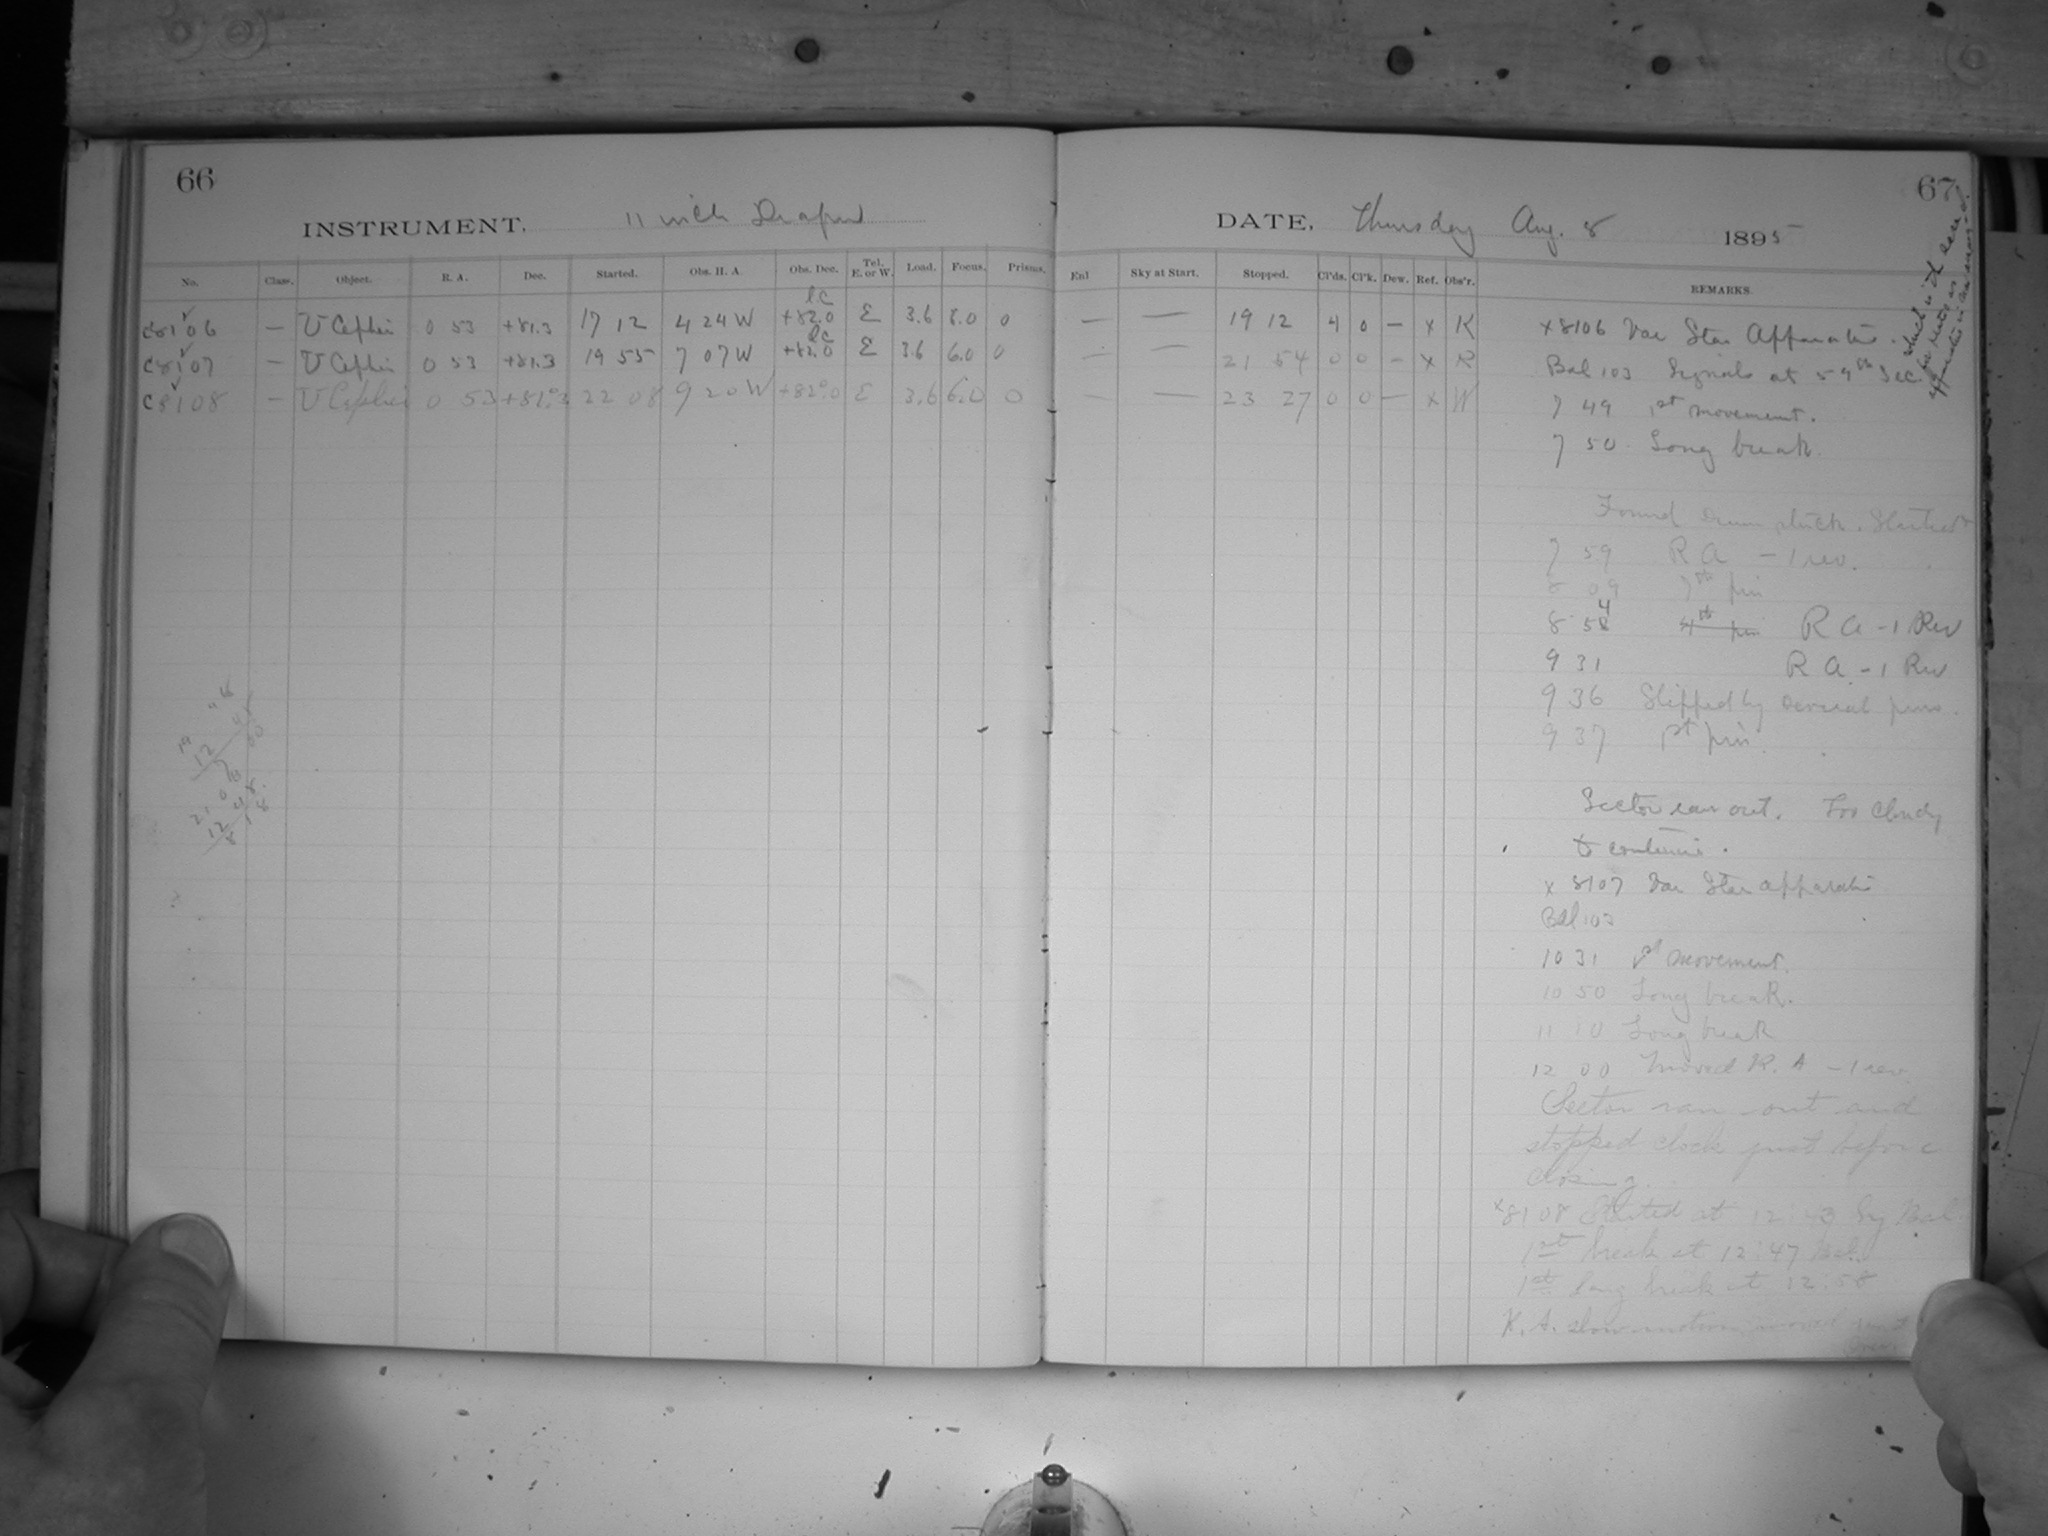 66
INSTRUMENT. 11 inch Draper
No. Class. Object. R. A. Dec. Started. Obs. H. A. Obs. Dec. Tel. E. or W. Load. Focus. Prisms.
C8106 — U Cephei 0 53 +81.3 17 12 4 24 W +82.0 lC E 3.6 8.0 0
C8107 — U Cephei 0 53 +81.3 19 55 7 07 W +82.0 lC E 3.6 6.0 0
C8108 — U Cephei 0 53 +81°.3 22 08 9 20 W +82°.0 E 3.6 6.0 0
67
DATE, Thursday Aug. 8 1895
Exl Sky at Start. Stopped. Cl'ds. Cl'k. Dew. Ref. Obs'r. REMARKS.
— — 19 12 4 0 — x K
— — 21 54 0 0 — x R
— — 23 27 0 0 — x W
x 8106 Var Star Apparatus.
Bal 103 Signals at 59th sec
7 49 1st movement.
7 50 Long break.
Found drum stuck. Started
7 59 R A – 1 rev.
8 09 7th pin
8 54 4th pin R A – 1 Rev
9 31 R A – 1 Rev
9 36 Slipped by several pins.
9 37 1st pin.
Sector ran out. Too cloudy
to continue.
x 8107 Var Star apparatus
Bal 103
10 31 1st movement.
10 50 Long break.
11 10 Long break
12 00 Moved R. A – 1 rev.
Sector ran out and
stopped clock just before
closing.
x 8108 Started at 12:43 by Bal
1st break at 12:47 Bal.
1st long break at 12:58
R. A. slow motion moved